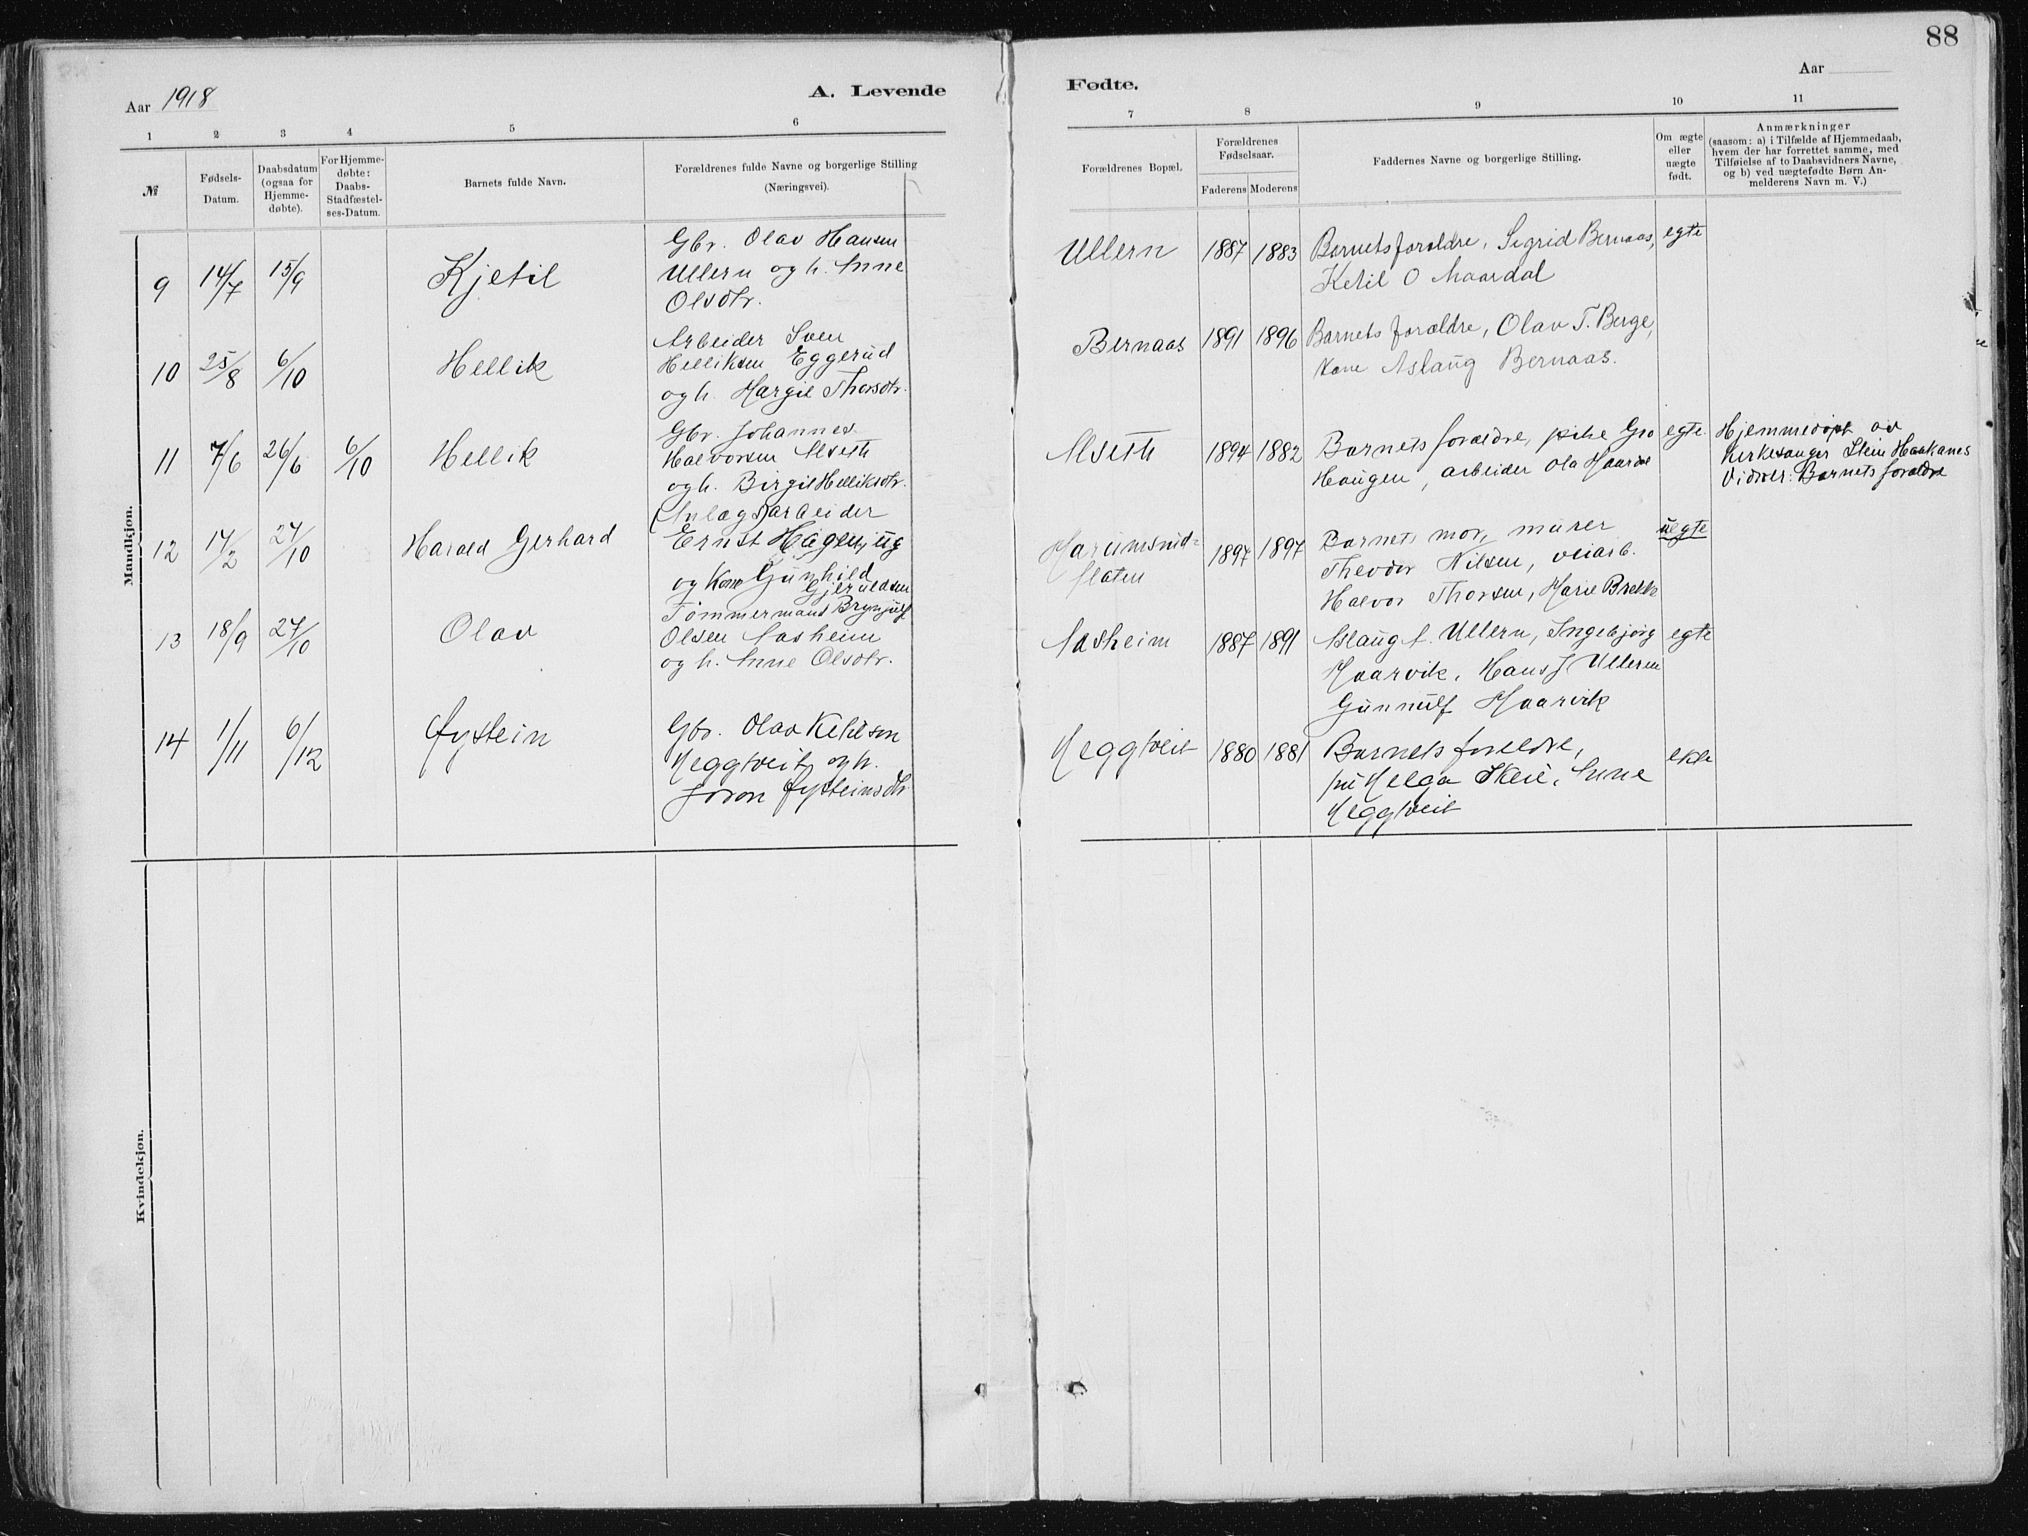 88
Aar 1918
A. Levende
Fødte.
Aar
1 2 3 4 5 6 7 8 9 10 11
№
Fødsels-
Datum.
Daabsdatum
(ogsaa for
Hjemme-
døbte).
For Hjemme-
døbte:
Daabs-
Stadfæstel-
ses-Datum.
Barnets fulde Navn.
Forældrenes fulde Navne og borgerlige Stilling
(Næringsvei).
Forældrenes Bopæl.
Forældrenes
Fødselsaar.
Faderens Moderens
Faddernes Navne og borgerlige Stilling.
Om ægte
eller
uægte
født.
Anmærkninger
(saasom: a) i Tilfælde af Hjemmedaab,
hvem der har forrettet samme, med
Tilføielse af to Daabsvidners Navne,
og b) ved uægtefødte Børn An-
melderens Navn m. V.)
Mandkjøn.
9 14/7 15/9 Kjetil
Gbr. Olav Hansen
Ullern og h. Anne
Olsdtr.
Ullern 1887 1883
Barnets forældre, Sigrid Bernaas,
Ketil O Maardal
egte
10 25/8 6/10 Hellik
Arbeider Sven
Helliksen Eggerud
og h. Margit Thorsdtr.
Bernaas 1891 1896
Barnets forældre, Olav T. Berge,
Kone Aslaug Bernaas.
11 7/6 26/6 6/10 Hellik
Gbr. Johannes
Halvorsen Alseth
og h. Birgit Helliksdtr.
Alseth 1894 1882
Barnets forældre, pike Gro
Haugen, arbeider Ola
egte
Hjemmedøpt av
Kirkesanger Stein Haakanes
Vidner: Barnets forældre
12 17/2 27/10 Harald Gerhard
(Anlægsarbeider
Ernst Hagen, ug
og Kone Gunhild
Gjeruldsen
1897 1897
Barnets mor, murer
Theodor Nilsen, veiarb.
Halvor Thorsen, Marie Brekke
uegte
13 18/9 27/10 Olav
Tømmermand Brynjulf
Olsen Aasheim
og h. Anne Olsdtr.
Aasheim 1887 1891
Aslaug Ullern, Ingebjørg
Haarvik, Hans J Ullern
Gunnulf Haarvik
egte
14 1/11 6/12 Øystein
Gbr. Olav Ketilsen
Heggtveit og h.
Joron Øysteinsdtr
Heggtveit 1880 1881
Barnets foreldre,
pi Helga Skeie, Anne
Heggtveit
ekte
Kvindekjøn.